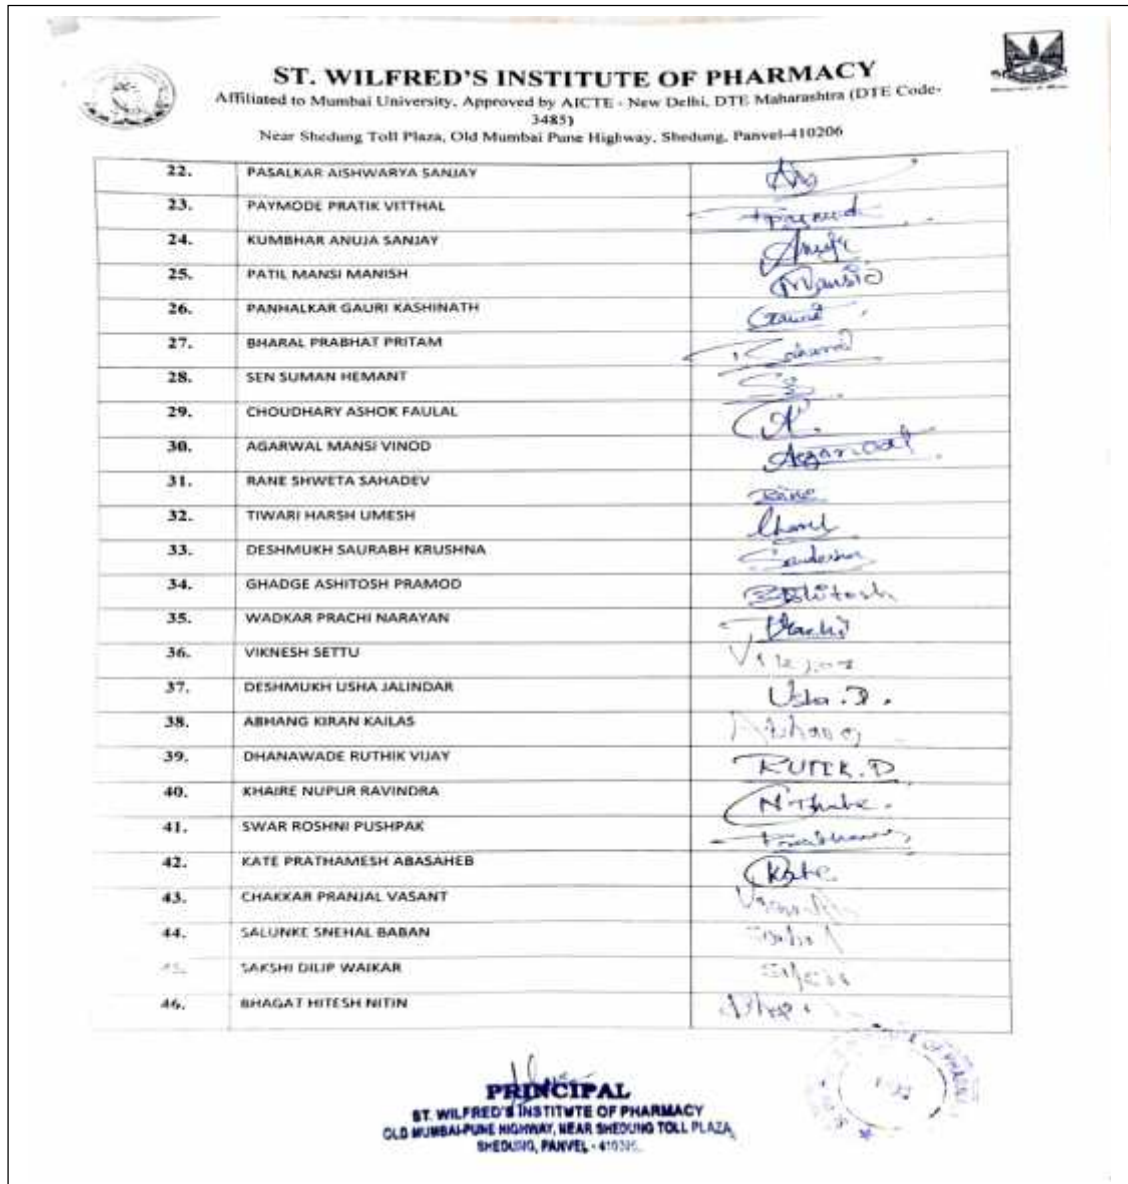 ST. WILFRED'S INSTITUTE OF PHARMACY
Affiliated to Mumbai University, Approved by AICTE - New Delhi, DTE Maharashtra (DTE Code-
3485)
Near Shedung Toll Plaza, Old Mumbai Pune Highway, Shedung, Panvel-410206
22. PASALKAR AISHWARYA SANJAY
23. PAYMODE PRATIK VITTHAL
24. KUMBHAR ANUJA SANJAY Anuja
25. PATIL MANSI MANISH Mansi
26. PANHALKAR GAURI KASHINATH
27. BHARAL PRABHAT PRITAM
28. SEN SUMAN HEMANT
29. CHOUDHARY ASHOK FAULAL
30. AGARWAL MANSI VINOD Agarwal
31. RANE SHWETA SAHADEV Rane
32. TIWARI HARSH UMESH
33. DESHMUKH SAURABH KRUSHNA
34. GHADGE ASHITOSH PRAMOD
35. WADKAR PRACHI NARAYAN Prachi
36. VIKNESH SETTU
37. DESHMUKH USHA JALINDAR Usha.D.
38. ABHANG KIRAN KAILAS Abhang
39. DHANAWADE RUTHIK VIJAY
40. KHAIRE NUPUR RAVINDRA
41. SWAR ROSHNI PUSHPAK
42. KATE PRATHAMESH ABASAHEB Kate
43. CHAKKAR PRANJAL VASANT
44. SALUNKE SNEHAL BABAN
45. SAKSHI DILIP WAIKAR
46. BHAGAT HITESH NITIN
PRINCIPAL
ST. WILFRED'S INSTITUTE OF PHARMACY
OLD MUMBAI-PUNE HIGHWAY, NEAR SHEDUNG TOLL PLAZA,
SHEDUNG, PANVEL - 410206.